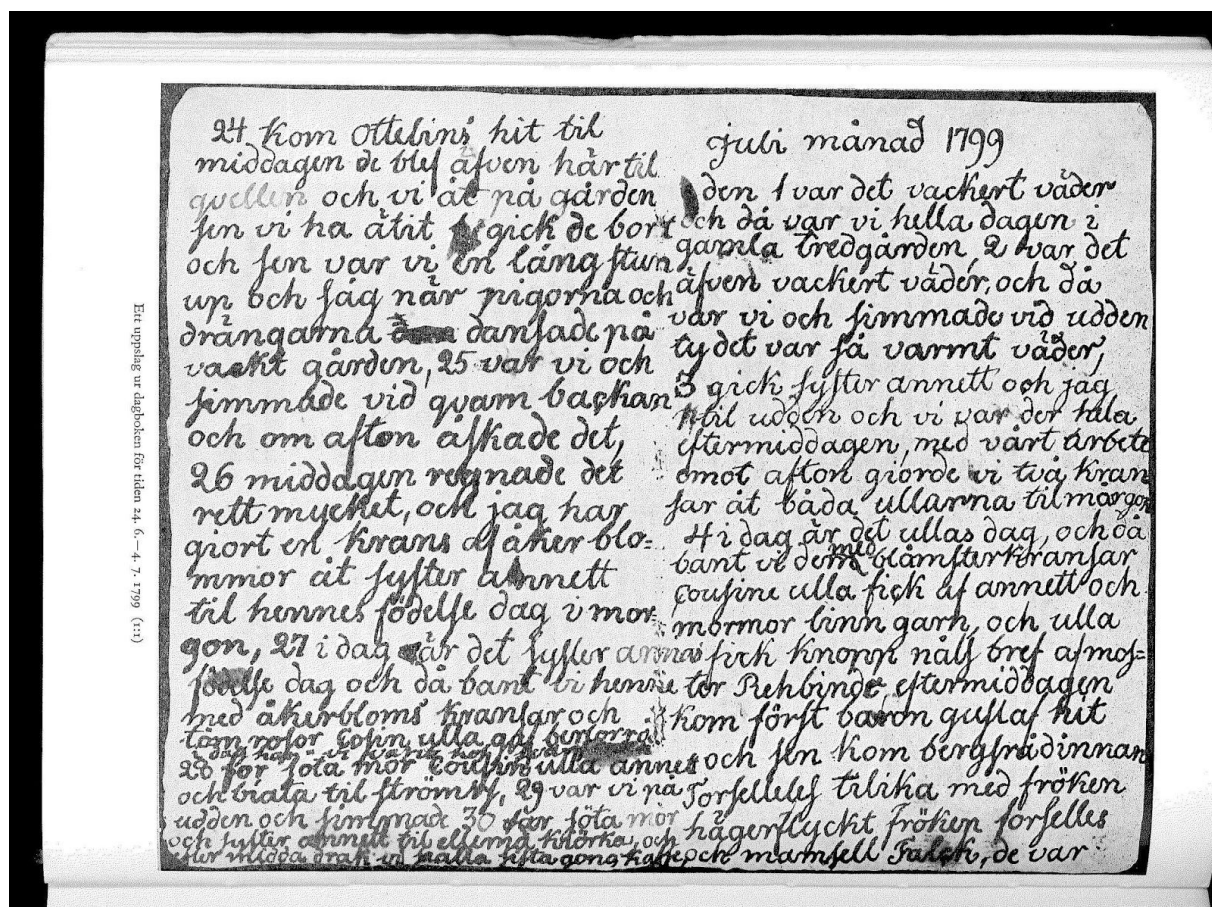 24 kom ottelins hit til
middagen de blef äfven här til
qvellen och vi åt på gården
sen vi ha ätit gick de bort
och sen var vi en lång stun
up och såg när pigorna och
drängarna dansade på
vackt gården, 25 var vi och
simmade vid qvarn backan
och om afton åskade det,
26 middagen regnade det
rett mycket, och jag har
giort en krans af åker blo=
mmor åt syster annett
til hennes födelse dag i mor
gon, 27 i dag är det syster annas
födelse dag och då bant vi henne
med åkerbloms kransar och
törn rosor Cosin ulla gaf
28 for söta mor Cousin ulla annet
och biata til strömsf, 29 var vi på
udden och simmade 30 får söta mor
och syster annett til ellemä körka, och
efter midda drak vi sista gong kaffe
juli månad 1799
den 1 var det vackert väder
och då var vi hella dagen i
gamla tredgården, 2 var det
äfven vackert väder, och då
var vi och simmade vid udden
ty det var så varmt väder,
3 gick syster annett och jag
til udden och vi var der hela
eftermiddagen, med vårt arbete
emot afton giorde vi två kran
sar åt båda ullarna til morgon
4 i dag är det ullas dag, och då
bant vi dem med blåmsterkransar
Cousine ulla fick af annett och
mormor linn garn, och ulla
fick knopp nåls bref af mos=
ter Rehbinde eftermiddagen
kom först baron gustaf hit
och sen kom bergsrådinnan
Forselleses tilika med fröken
hägerflyckt fröken forselles
och mamsell Falck, de var
Ett uppslag ur dagboken för tiden 24. 6.—4. 7. 1799 (1:1)